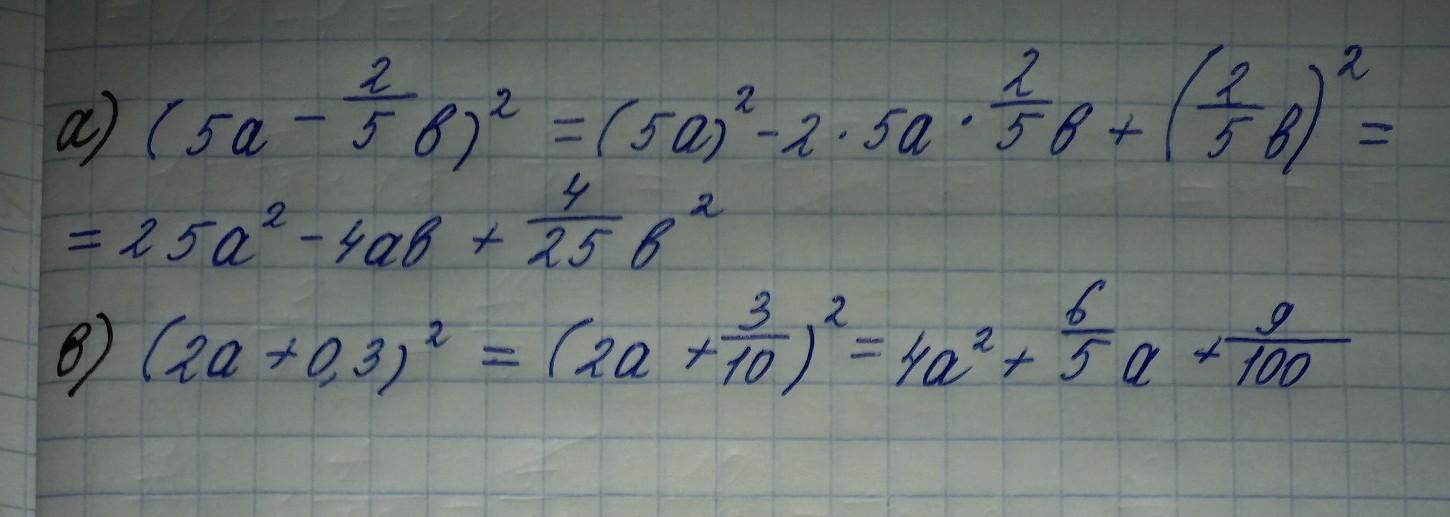 а) (5a - 2/5 в)² = (5a)² - 2 · 5a · 2/5 в + (2/5 в)² =
= 25a² - 4aв + 4/25 в²
в) (2a + 0,3)² = (2a + 3/10)² = 4a² + 6/5 a + 9/100